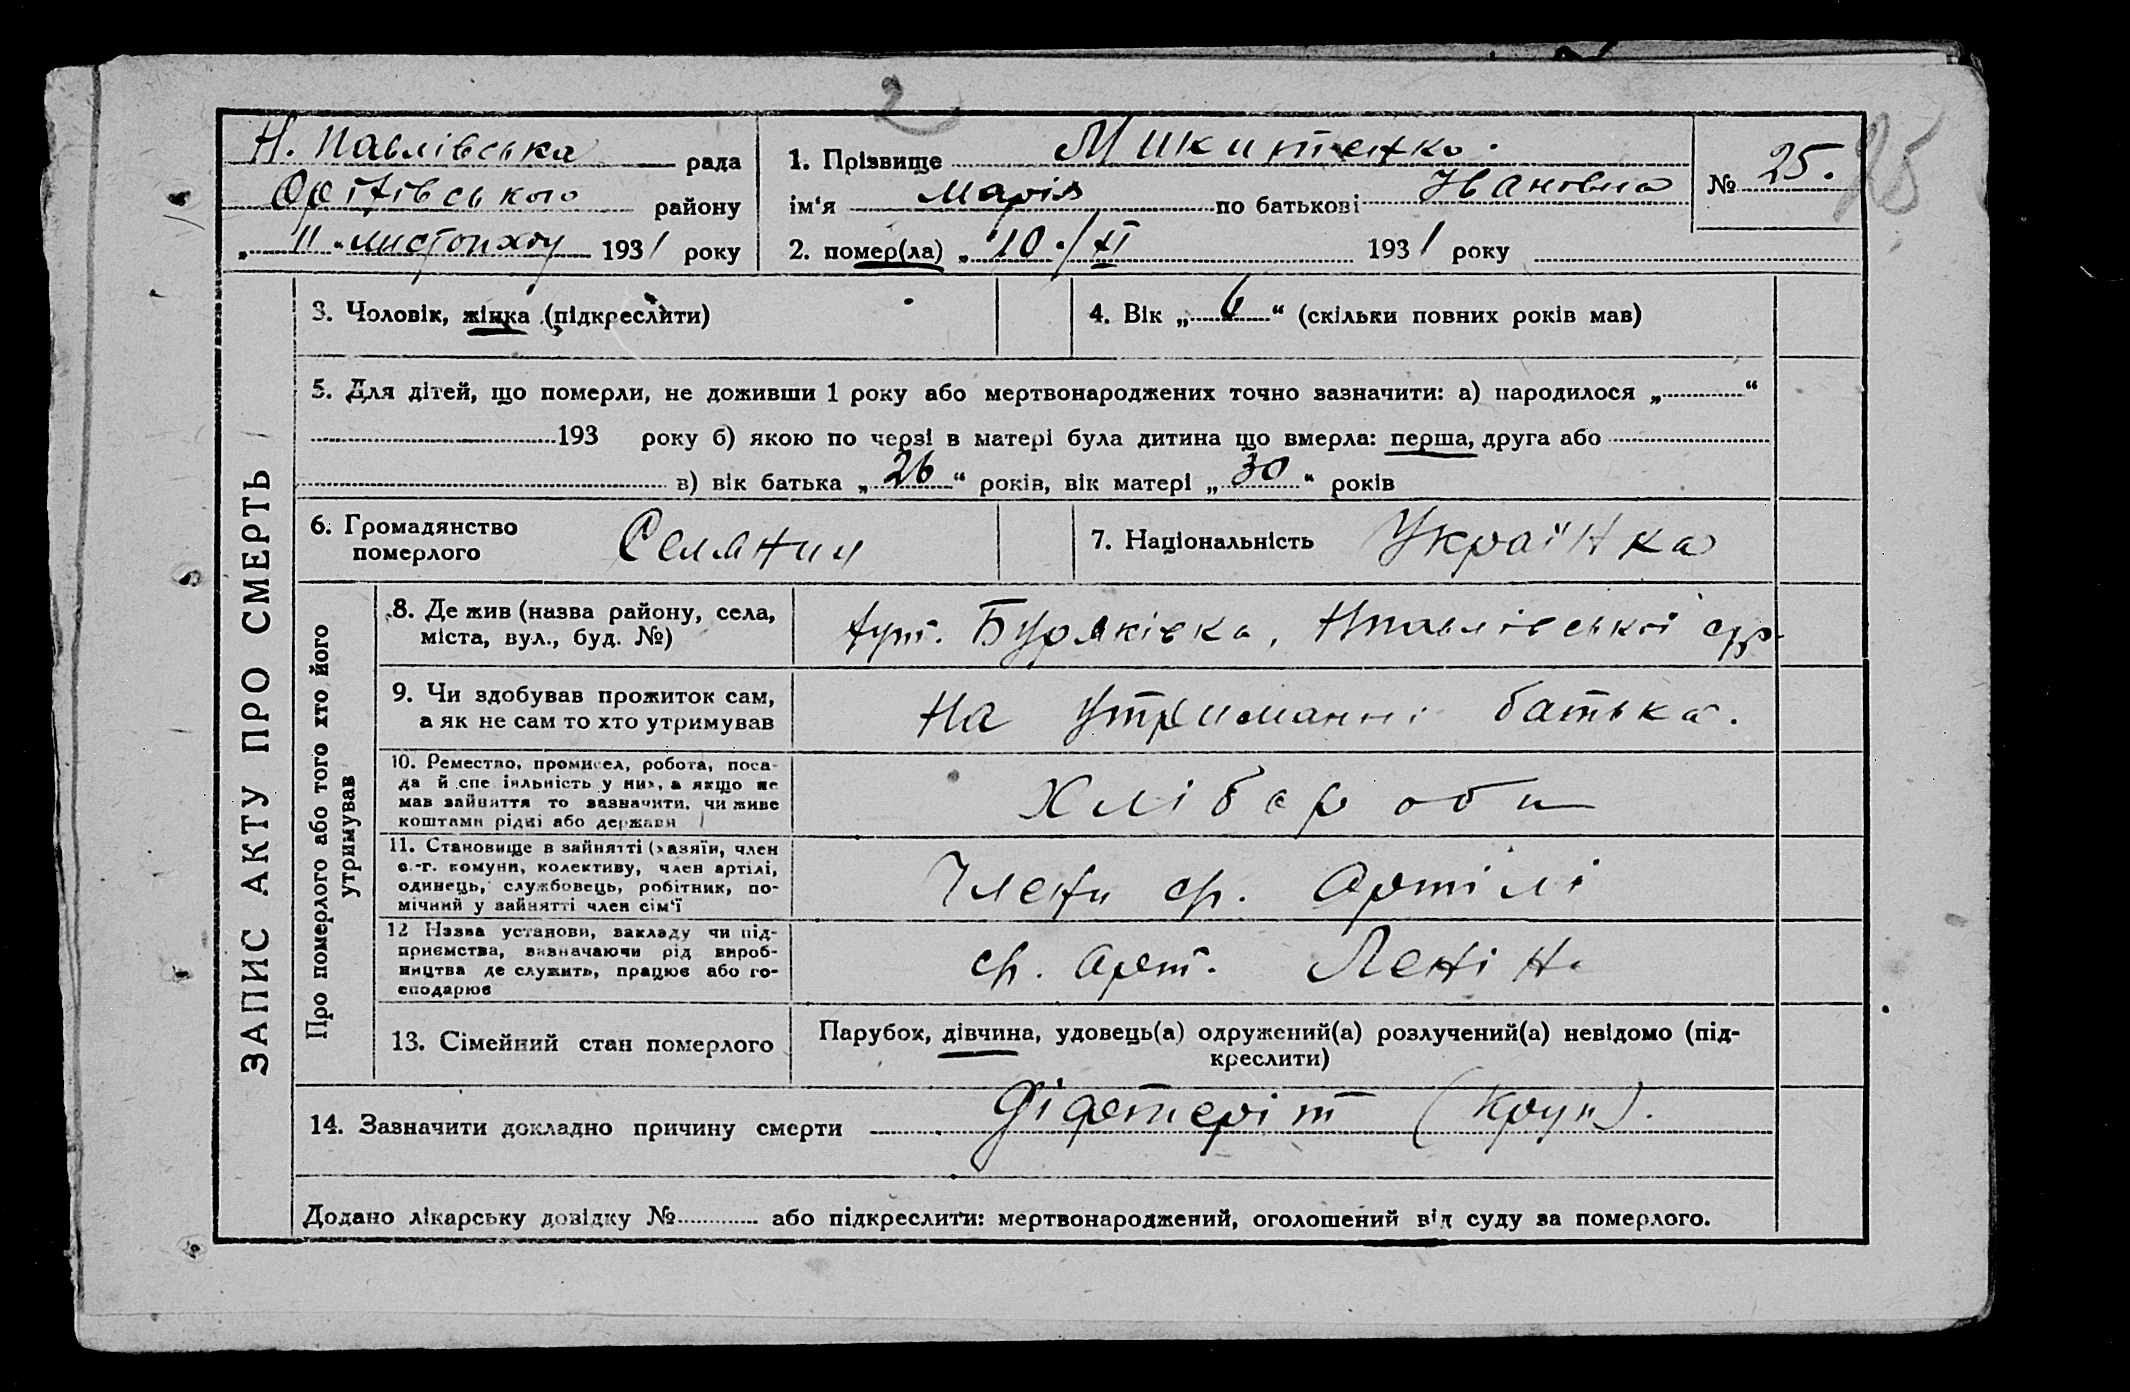 2
Н. Павлівська рада
Оріхівського району
„ 11 “ листопаду 1931 року
1. Прізвище Микитенко.
ім‘я Марія по батькові Івановна
2. помер(ла) „ 10 . / XI 1931 року
№ 25.
25
ЗАПИС АКТУ ПРО СМЕРТЬ
3. Чоловік, жінка (підкреслити)
4. Вік „ 6 “ (скільки повних років мав)
5. Для дітей, що померли, не доживши 1 року або мертвонароджених точно зазначити: а) народилося „ “
193 року б) якою по черзі в матері була дитина що вмерла: перша, друга або
в) вік батька „ 26 “ років, вік матері „ 30 “ років
6. Громадянство
померлого
Селянин
7. Національність Українка
Про померлого або того хто його
утримував
8. Де жив (назва району, села,
міста, вул., буд. №)
хут. Буряківка, Нпавлівської с/р
9. Чи здобував прожиток сам,
а як не сам то хто утримував
На утриманні батька.
10. Ремество, промисел, робота, поса-
да й спеціяльність у них, а якщо не
мав зайняття то зазначити, чи живе
коштами рідні або держави
Хлібороби
11. Становище в зайнятті (хазяїн, член
с.-г. комуни, колективу, член артілі,
одинець, службовець, робітник, по-
мічний у зайнятті член сім‘ї
Члени ср. Артілі
12 Назва установи, закладу чи під-
приємства, визначаючи рід вироб-
ництва де служить, працює або го-
сподарює
ср. арт. Ленін.
13. Сімейний стан померлого
Парубок, дівчина, удовець(а) одружений(а) розлучений(а) невідомо (під-
креслити)
14. Зазначити докладно причину смерти Діфтеріт (Круп).
Додано лікарську довідку № або підкреслити: мертвонароджений, оголошений від суду за померлого.